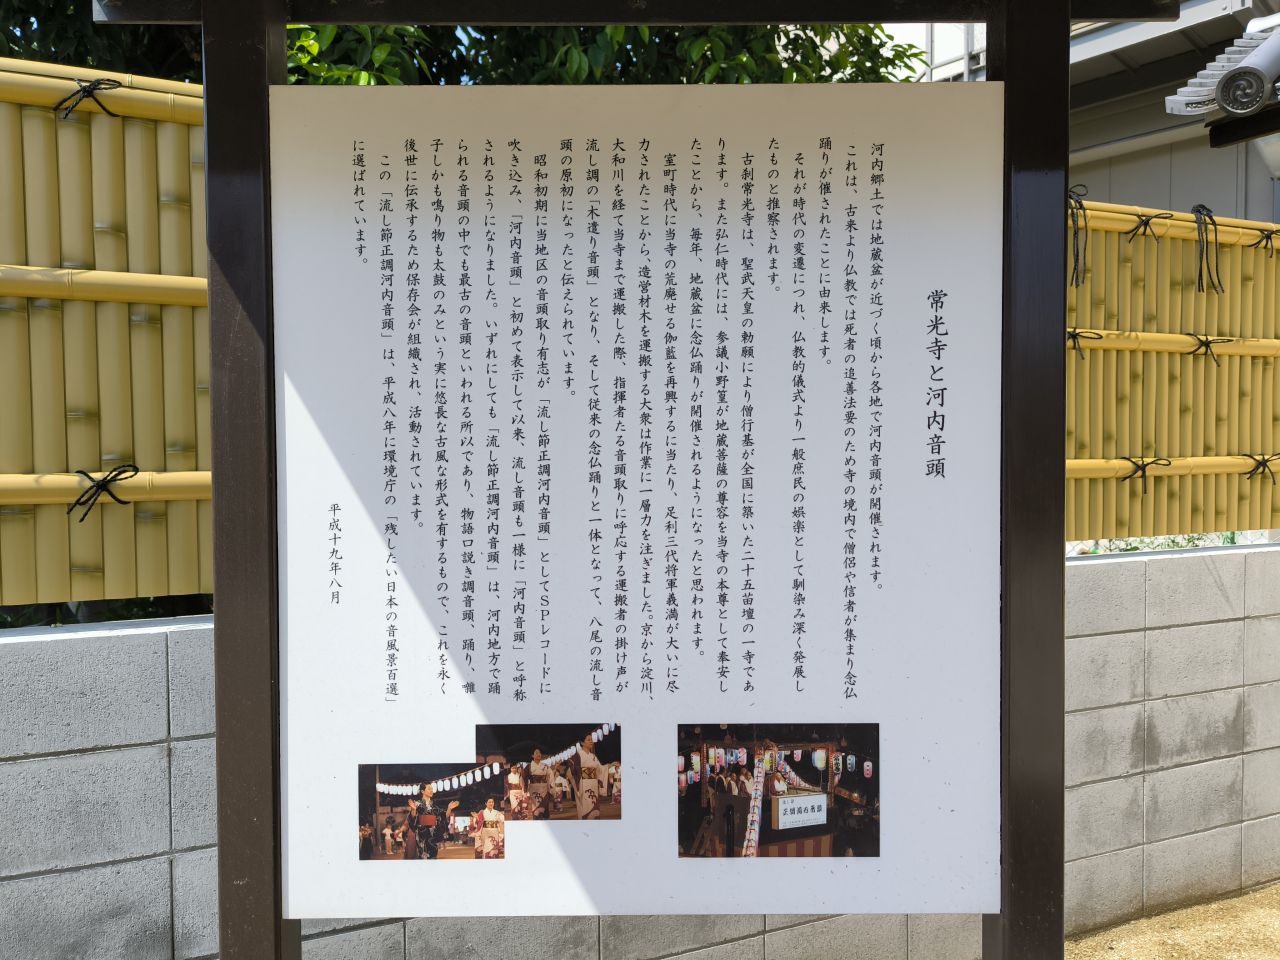 常光寺と河内音頭
河内郷土では地蔵盆が近づく頃から各地で河内音頭が開催されます。
これは、古来より仏教では死者の追善法要のため寺の境内で僧侶や信者が集まり念仏
踊りが催されたことに由来します。
それが時代の変遷につれ、仏教的儀式より一般庶民の娯楽として馴染み深く発展し
たものと推察されます。
古刹常光寺は、聖武天皇の勅願により僧行基が全国に築いた二十五苗壇の一寺であ
ります。また弘仁時代には、参議小野篁が地蔵菩薩の尊容を当寺の本尊として奉安し
たことから、毎年、地蔵盆に念仏踊りが開催されるようになったと思われます。
室町時代に当寺の荒廃せる伽藍を再興するに当たり、足利三代将軍義満が大いに尽
力されたことから、造営材木を運搬する大衆は作業に一層力を注ぎました。京から淀川、
大和川を経て当寺まで運搬した際、指揮者たる音頭取りに呼応する運搬者の掛け声が
流し調の「木遣り音頭」となり、そして従来の念仏踊りと一体となって、八尾の流し音
頭の原初になったと伝えられています。
昭和初期に当地区の音頭取り有志が「流し節正調河内音頭」としてSPレコードに
吹き込み、「河内音頭」と初めて表示して以来、流し音頭も一様に「河内音頭」と呼称
されるようになりました。いずれにしても「流し節正調河内音頭」は、河内地方で踊
られる音頭の中でも最古の音頭といわれる所以であり、物語口説き調音頭、踊り、囃
子しかも鳴り物も太鼓のみという実に悠長な古風な形式を有するもので、これを永く
後世に伝承するため保存会が組織され、活動されています。
この「流し節正調河内音頭」は、平成八年に環境庁の「残したい日本の音風景百選」
に選ばれています。
平成十九年八月